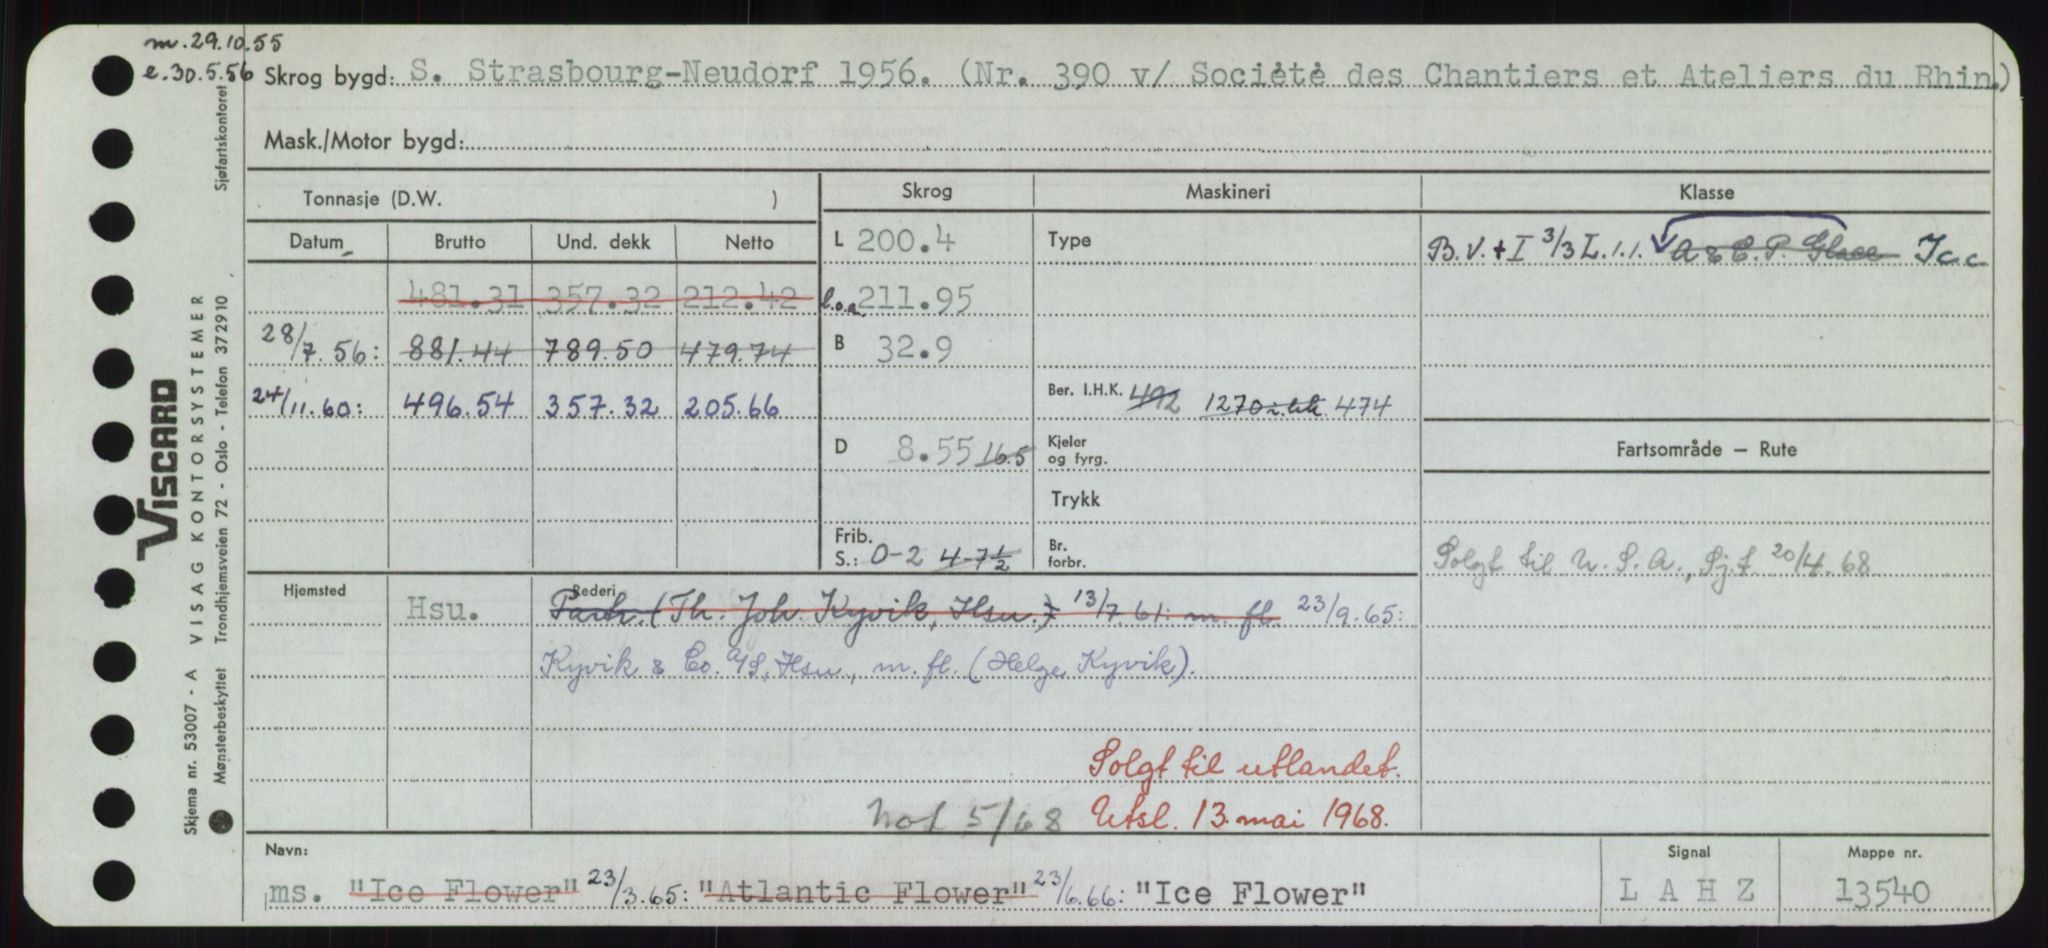 m. 29.10.55
e. 30.5.56 Skrog bygd: S. Strasbourg-Neudorf 1956. (Nr. 390 v/ Sociėtė des Chantiers et Ateliers du Rhin.)
Mask./Motor bygd:
Tonnasje (D.W. )
Skrog Maskineri Klasse
Datum Brutto Und. dekk Netto
L 200.4 Type B.V. + I 3/3 L.1.1. A & C.P. Glace Ice
481.31 357.32 212.42 l.o.a. 211.95
28/7.56: 881.44 789.50 479.74 B 32.9
24/11.60: 496.54 357.32 205.66 Ber. I.H.K. 492 1270 i.hk 474
D 8.55 16.5 Kjeler og fyrg. Fartsområde — Rute
Trykk
Frib. S.: 0-2 4-7½ Br. forbr. Solgt til U.S.A., Sj.f. 20/4.68
Hjemsted Hsu. Rederi Partr. (Th. Joh. Kyvik, Hsu.) 13/7.61: m. fl. 23/9.65:
Kyvik & Co. A/S, Hsu., m. fl. (Helge Kyvik).
Solgt til utlandet.
Not 5/68 Utsl. 13. mai 1968.
Navn: Signal Mappe nr.
ms. "Ice Flower" 23/3.65: "Atlantic Flower" 23/6.66: "Ice Flower" L A H Z 13540
VISCARD
Skjema nr. 53007 - A VISAG KONTORSYSTEMER
Mønsterbeskyttet Trondhjemsveien 72 - Oslo - Telefon 372910 Sjøfartskontoret